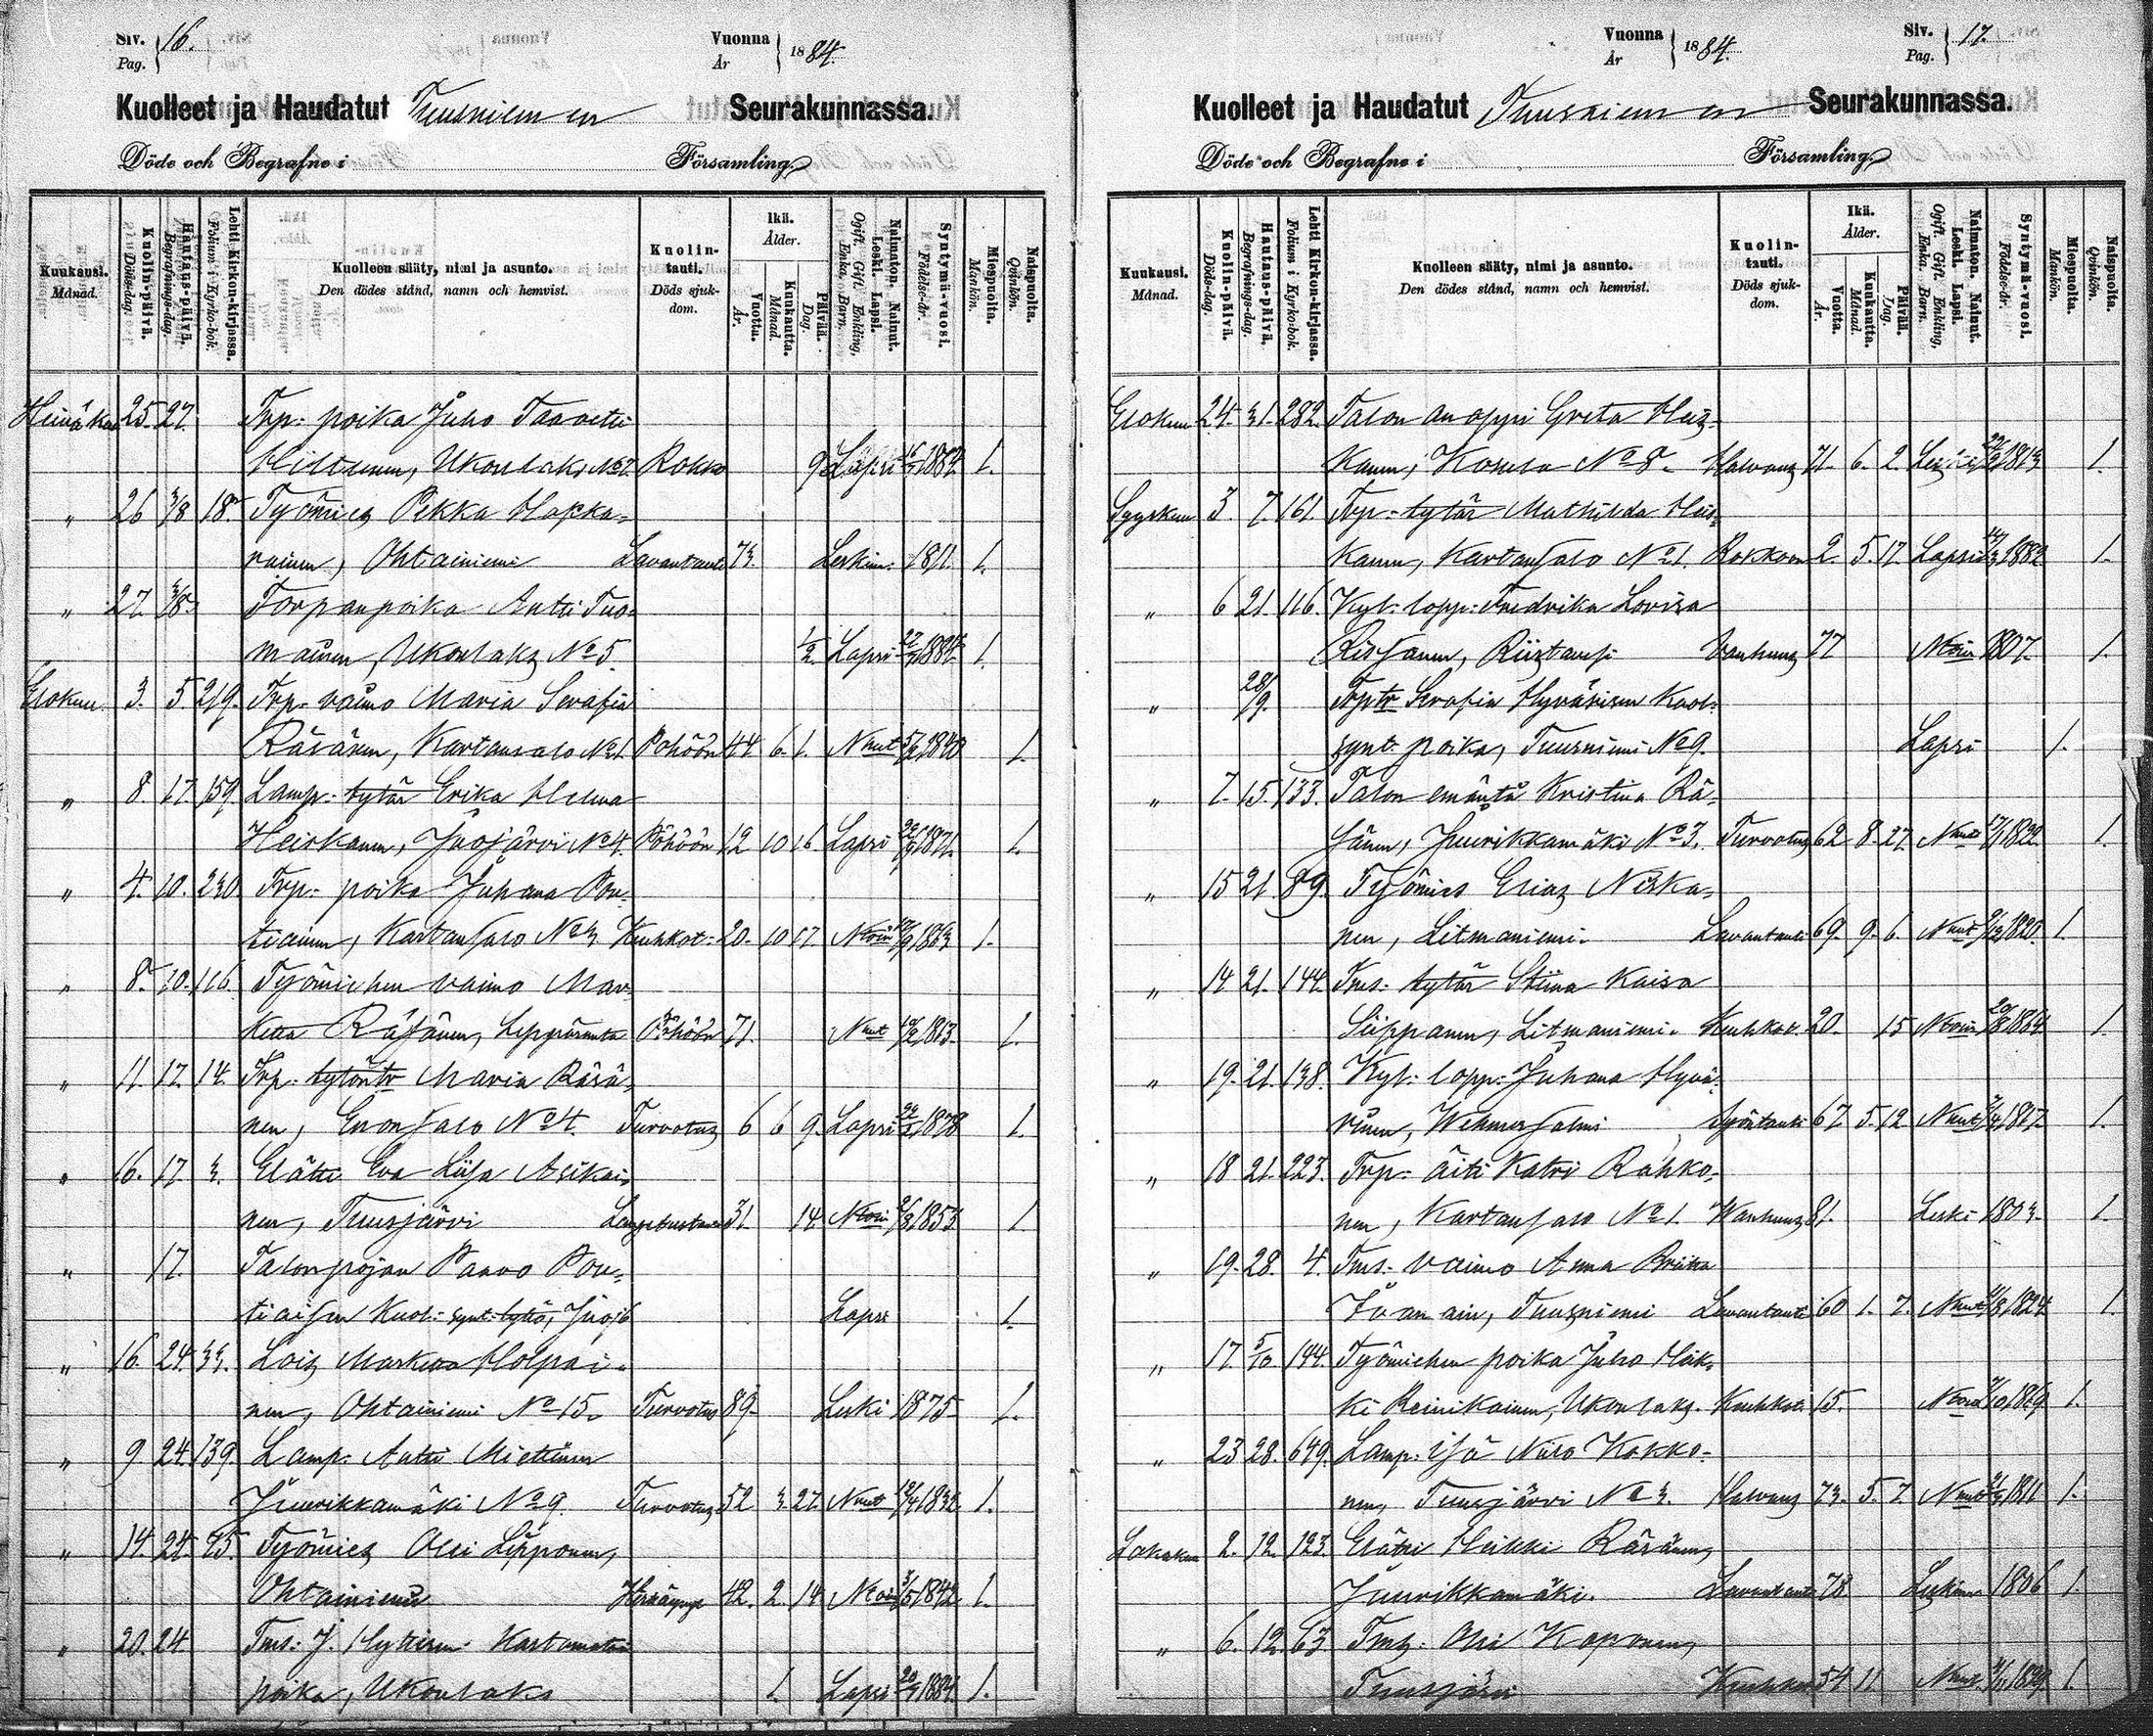 Siv. Pag. } 16.
Vuonna År } 1884.
Kuolleet ja Haudatut Tuusniemen Seurakunnassa.
Döde och Begrafne i Församling.
Kuukausi. Månad.
Kuolin-päivä. Döds-dag.
Hautaus-päivä. Begrafnings-dag.
Lehti Kirkon-kirjassa. Folium i Kyrko-bok.
Kuolleen sääty, nimi ja asunto. Den dödes stånd, namn och hemvist.
Kuolin-tauti. Döds sjuk-dom.
Ikä. Ålder.
Vuotta. År.
Kuukautta. Månad.
Päivää. Dag.
Naimaton. Nainut. Leski. Lapsi. Ogift. Gift. Enkling, Enka. Barn.
Syntymä-vuosi. Födelse-år.
Miespuolta. Mankön.
Naispuolta. Qvinkön.
Heinäkuu 25. 27. Trp: poika Juho Taavetti
Hiltunen, Ukonlaks No 7. Rokko 9 Lapsi 16/7 1884 1.
" 26 3/8 18. Työmies Pekka Hakka-
rainen, Ohtainiemi Lavantauti 73. Leskim. 1811. 1.
" 27. 3/8. Torpanpoika Antti Tuo-
mainen, Ukonlaks No 5. 1/2 Lapsi 27/7 1884. 1.
Elokuu. 3. 5. 219. Trp. vaimo Maria Serafia
Räsänen, Kartansalo No 1. Pöhöön 44 6. 1. Nnut 1840 1.
" 8. 17. 159. Lamp: tytär Erika Helena
Heiskanen, Juojärvi No 4. Pöhöön 12 10 16. Lapsi 1871. 1.
" 4. 10. 230 Trp: poika Juhana Pou-
tiainen, Kartansalo No 3 Keuhkot: 20. 10 17. Ntoin 1863 1.
" 8. 10. 116. Työmiehen vaimo Mar-
keta Räsänen, Leppäranta Pöhöön 71. Nnut 1813. 1.
" 11. 17. 14. Trp: tytöntr Maria Räsä-
nen, Enonsalo No 4. Turvotus 6 6 9. Lapsi 1878 1.
" 16. 17. 3. Elätti Eva Liisa Asikai-
nen, Tuusjärvi 31. 14. Ntoin 1853 1.
" 17. Talonpojan Paavo Pou-
tiaisen Kuol: synt. tyttö, Juoj 6 Lapsi 1.
" 16. 24. 33. Lois Marketta Holopai-
nen, Ohtainiemi No 15. Turvotus 89. Leski 1875 1.
" 9 24. 139. Lamp: Antti Miettinen
Juurikkamäki No 9. Turvotus 52 3. 27. Nnut 12/4 1832 1.
" 14. 24. 95. Työmies Olli Lipponen,
Ohtainiemi 42. 2. 14. Ntoin 1842 1.
" 20. 24 Tms: J. Hytisen Kastamatoin
poika, Ukonlaks 1. Lapsi 20/7 1884. 1.
Vuonna År } 1884.
Siv. Pag. } 17.
Kuolleet ja Haudatut Tuusniemen Seurakunnassa.
Döde och Begrafne i Församling.
Kuukausi. Månad.
Kuolin-päivä. Döds-dag.
Hautaus-päivä. Begrafnings-dag.
Lehti Kirkon-kirjassa. Folium i Kyrko-bok.
Kuolleen sääty, nimi ja asunto. Den dödes stånd, namn och hemvist.
Kuolin-tauti. Döds sjuk-dom.
Ikä. Ålder.
Vuotta. År.
Kuukautta. Månad.
Päivää. Dag.
Naimaton. Nainut. Leski. Lapsi. Ogift. Gift. Enkling, Enka. Barn.
Syntymä-vuosi. Födelse-år.
Miespuolta. Mankön.
Naispuolta. Qvinkön.
Elokuu 24. 31. 282. Talon anoppi Greta Heis-
kanen, Kosula No 8. Halvaus 71. 6. 2. Leski 1813 1.
Syyskuu 3. 7. 161. Trp: tytär Mathilda Heis-
kanen, Kartansalo No 1. Rokkoon 2. 5. 17. Lapsi 1882 1.
" 6 21. 116. Kyl: lopp: Fredrika Lovisa
Rissanen, Riistavesi Vanhuus 77 Ntoin 1807. 1.
" 28/9. Trp tr Serafia Hyvärisen Kuol:
synt. poika, Tuusniemi No 9. Lapsi 1.
" 7. 15. 133. Talon emäntä Kristina Rä-
sänen, Juurikkamäki No 3. Turvotus 62 8. 27. Nnut 1822. 1.
" 15 21. 89. Työmies Elias Niska-
nen, Litmaniemi. Lavantauti 69. 9. 6. Nnut 1820. 1.
" 14 21. 144. Tms. tytär Stiina Kaisa
Sippanen, Litmaniemi. Keuhkot. 20. 15 Ntoin 1864 1.
" 19. 21. 138. Kyl: lopp: Juhana Hyvä-
rinen, Wehmersalmi Syöntauti 67. 5. 12. Nnut 1817. 1.
" 18 21. 223. Trp: äiti Katri Rahko-
nen, Kartansalo No 1. Wanhuus 81. Leski 1803. 1.
" 19. 28. 4. Tms: vaimo Anna Briita
Tuusniemi Lavantauti 60 1. 7. Nnut 1824. 1.
" 17. 5/10 144. Työmiehen poika Juho Heik-
ki Reinikainen, Ukonlaks. Keuhkot. 15. Ntoin 1869 1.
" 23 28. 649. Lamp: isä Niilo Kokko-
nen, Tuusjärvi No 3. Halvaus 73. 5. 7. Nnut 1811 1.
Lokakuu 2. 12. 123. Elätti Heikki Räsänen,
Juurikkamäki. Lavantauti 78 Leskim 1806 1.
" 6. 12. 63 Tms: Olli Koponen,
Tuusjärvi Keuhkot 54 11 Nnut. 1829 1.